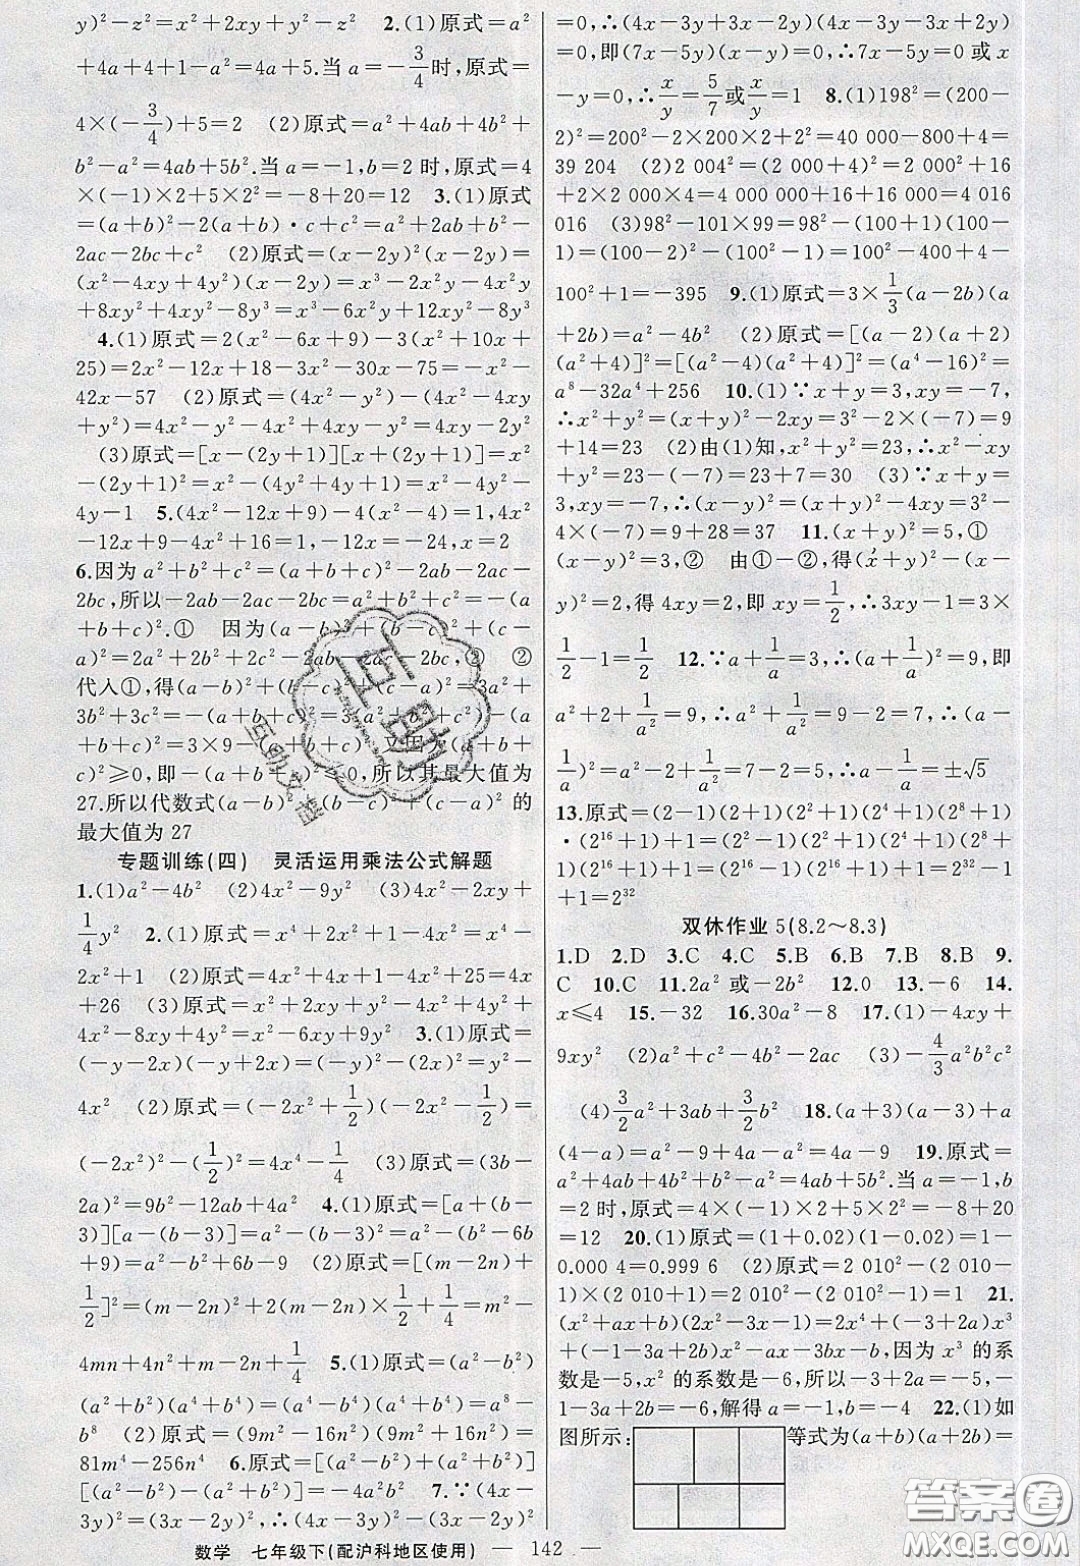 y)²-z²=x²+2xy+y²-z²　2.(1)原式=a²
+4a+4+1-a²=4a+5.当a=-3/4时,原式=
4×(-3/4)+5=2　(2)原式=a²+4ab+4b²+
b²-a²=4ab+5b².当a=-1,b=2时,原式=4
×(-1)×2+5×2²=-8+20=12　3.(1)原式
=(a+b)²-2(a+b)·c+c²=a²+2ab+b²-
2ac-2bc+c²　(2)原式=(x-2y)²(x-2y)=
(x²-4xy+4y²)(x-2y)=x³-2x²y-4x²y
+8xy²+4xy²-8y³=x³-6x²y+12xy²-8y³
4.(1)原式=2(x²-6x+9)-3(x²+10x+
25)=2x²-12x+18-3x²-30x-75=-x²-
42x-57　(2)原式=(4x²-y²)-(4x²-4xy
+y²)=4x²-y²-4x²+4xy-y²=4xy-2y²
(3)原式=[x-(2y+1)][x+(2y+1)]=x²
-(2y+1)²=x²-(4y²+4y+1)=x²-4y²-
4y-1　5.(4x²-12x+9)-4(x²-4)=1,4x²
-12x+9-4x²+16=1,-12x=-24,x=2
6.因为a²+b²+c²=(a+b+c)²-2ab-2ac-
2bc,所以-2ab-2ac-2bc=a²+b²+c²-(a
+b+c)².①　因为(a-b)²+(b-c)²+(c-
a)²=2a²+2b²+2c²-2ab-2ac-2bc,②　②
代入①,得(a-b)²+(b-c)²+(c-a)²=3a²+
3b²+3c²-(a+b+c)²=3(a²+b²+c²)-(a
+b+c)²=3×9-(a+b+c)².又因为(a+b+
c)²≥0,即-(a+b+c)²≤0,所以其最大值为
27.所以代数式(a-b)²+(b-c)²+(c-a)²的
最大值为27
专题训练(四)　灵活运用乘法公式解题
1.(1)a²-4b²　(2)4x²-9y²　(3)4x²-2xy+
1/4y²　2.(1)原式=x⁴+2x²+1-4x²=x⁴-
2x²+1　(2)原式=x²+4x+1-x²+25=4x
+26　(3)原式=x²+2xy+y²-4x²+4y²+
4x²-8xy+4y²=x²-6xy+9y²　3.(1)原式=
(-y-2x)(-y+2x)=(-y)²-(2x)²=y²-
4x²　(2)原式=(-2x²+1/2)(-2x²-1/2)=
(-2x²)²-(1/2)²=4x⁴-1/4　(3)原式=(3b-
2a)²=9b²-12ab+4a²　4.(1)原式=[a+(b-
3)][a-(b-3)]=a²-(b-3)²=a²-(b²-6b
+9)=a²-b²+6b-9　(2)原式=[(m-2n)+
1/2]²=(m-2n)²+(m-2n)×1/2+1/4=m²-
4mn+4n²+m-2n+1/4　5.(1)原式=(a²-b²)
(a²+b²)(a⁴+b⁴)=(a⁴-b⁴)(a⁴+b⁴)=a⁸-
b⁸　(2)原式=(9m²-16n²)(9m²+16n²)=
81m⁴-256n⁴　6.原式=[(a²-b²)+(a²+b²)]
[(a²-b²)-(a²+b²)]=-4a²b²　7.∵(4x-
3y)²=(3x-2y)²,∴(4x-3y)²-(3x-2y)²
=0,∴(4x-3y+3x-2y)(4x-3y-3x+2y)
=0,即(7x-5y)(x-y)=0,∴7x-5y=0或x
-y=0,∴x/y=5/7或x/y=1　8.(1)198²=(200-
2)²=200²-2×200×2+2²=40 000-800+4=
39 204　(2)2 004²=(2 000+4)²=2 000²+16
+2×2 000×4=4 000 000+16+16 000=4 016
016　(3)98²-101×99=98²-(100+1)(100-
1)=(100-2)²-(100²-1)=100²-400+4-
100²+1=-395　9.(1)原式=3×1/3(a-2b)(a
+2b)=a²-4b²　(2)原式=[(a-2)(a+2)
(a²+4)]²=[(a²-4)(a²+4)]²=(a⁴-16)²=
a⁸-32a⁴+256　10.(1)∵x+y=3,xy=-7,
∴x²+y²=(x+y)²-2xy=3²-2×(-7)=9
+14=23　(2)由(1)知,x²+y²=23,∴x²-xy
+y²=23-(-7)=23+7=30　(3)∵x+y=
3,xy=-7,∴(x-y)²=(x+y)²-4xy=3²-
4×(-7)=9+28=37　11.(x+y)²=5,①
(x-y)²=3,②　由①-②,得(x+y)²-(x-
y)²=2,得4xy=2,即xy=1/2,∴3xy-1=3×
1/2-1=1/2　12.∵a+1/a=3,∴(a+1/a)²=9,即
a²+2+1/a²=9,∴a²+1/a²=9-2=7,∴(a-
1/a)²=a²-2+1/a²=7-2=5,∴a-1/a=±√5
13.原式=(2-1)(2+1)(2²+1)(2⁴+1)(2⁸+1)
·(2¹⁶+1)+1=(2¹⁶-1)(2¹⁶+1)+1=2³²-1
+1=2³²
双休作业5(8.2～8.3)
1.D　2.D　3.C　4.C　5.B　6.B　7.B　8.B　9.
C　10.C　11.2a²或-2b²　12.0　13.-6　14.
x≤4　15.-32　16.30a²-8　17.(1)-4xy+
9xy²　(2)a²+c²-4b²-2ac　(3)-4/3a²b²c²
(4)3/2a²+3ab+3/2b²　18.(a+3)(a-3)+a
(4-a)=a²-9+4a-a²=4a-9　19.原式=
a²+4ab+4b²+b²-a²=4ab+5b².当a=-1,b
=2时,原式=4×(-1)×2+5×2²=-8+20
=12　20.(1)原式=(1+0.02)(1-0.02)=1-
0.000 4=0.999 6　(2)原式=2 010²-(2 010-
1)×(2 010+1)=2 010²-(2 010²-1)=1　21.
(x²+ax+b)(2x²-3x-1)=2x⁴+(-3+2a)x³
+(-1-3a+2b)x²-ax-3bx-b,因为x³的系
数是-5,x²的系数是-6,所以-3+2a=-5,
-1-3a+2b=-6,解得a=-1,b=-4　22.(1)如
图所示:等式为(a+b)(a+2b)=
数学　七年级下(配沪科地区使用)　—142—
答案圈
MXQE.COM